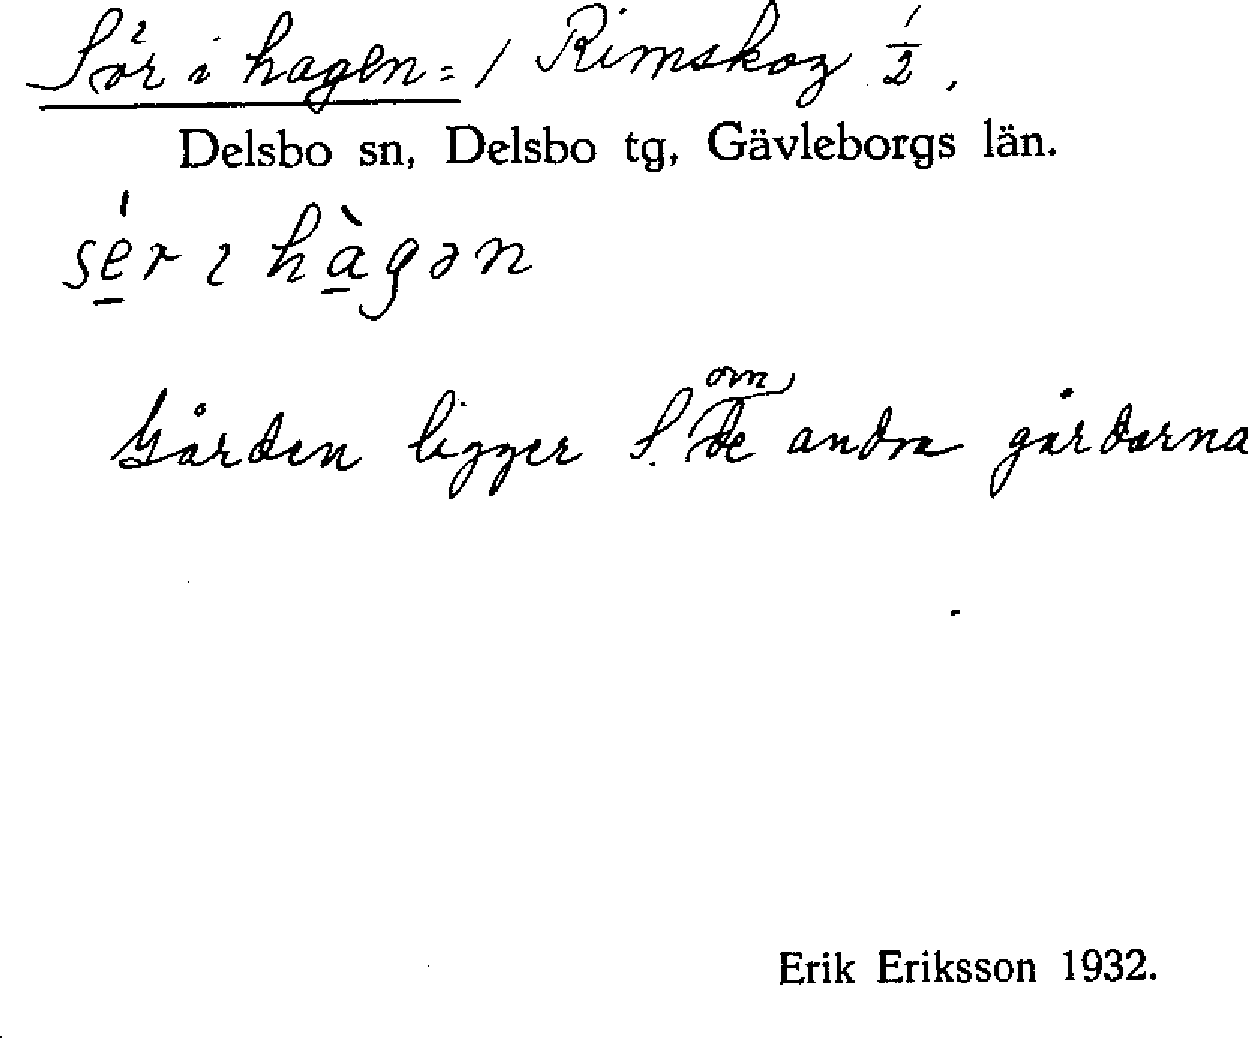 Sör i hagen = / Rimskog 1/2.
Delsbo sn, Delsbo tg, Gävleborgs län.
sér ɩ hàgən
Gården ligger S. om de andra gårdarna
Erik Eriksson 1932.